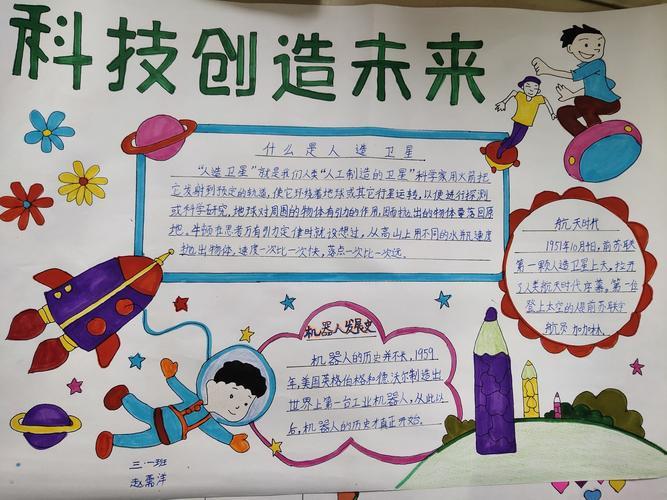 科技创造未来
什么是人造卫星
“人造卫星”就是我们人类“人工制造的卫星”科学家用火箭把
它发射到预定的轨道，使它环绕着地球或其它行星运转，以便进行探测
或科学研究，地球对周围的物体有引力的作用，因而抛出的物体要落回原
地，牛顿在思考万有引力定律时就设想过，从高山上用不同的水平速度
抛出物体，速度一次比一次快，落点一次比一次远。
航天时代
1957年10月4日，前苏联
第一颗人造卫星上天，拉开
了人类航天时代序幕，第一位
登上太空的是前苏联宇
航员加加林。
机器人发展史
机器人的历史并不长，1959
年，美国英格伯格和德沃尔制造出
世界上第一台工业机器人，从此以
后，机器人的历史才真正开始。
三·一班